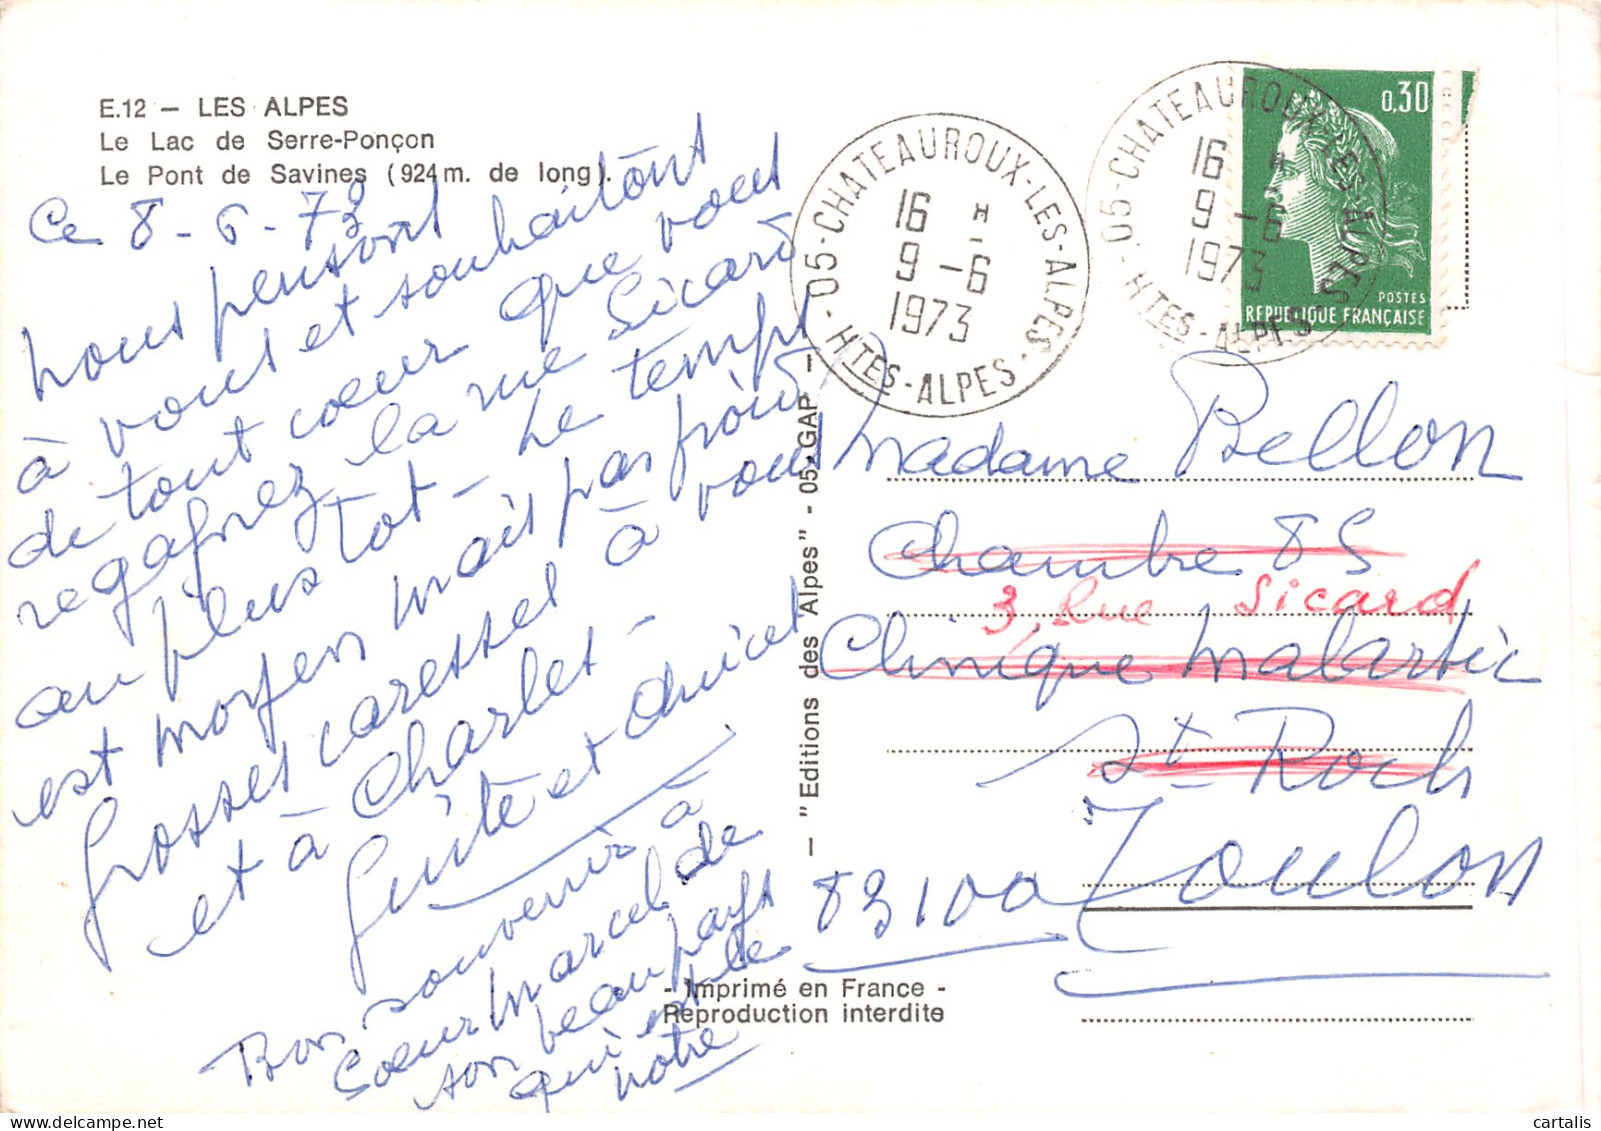 E.12 — LES ALPES
Le Lac de Serre-Ponçon
Le Pont de Savines (924 m. de long).
Ce 8-6-73
nous pensons
à vous et souhaitons
de tout cœur que vous
regagniez la rue Sicard
au plus tôt - Le temps
est moyen mais pas froid
Grosses caresses à vous
et à Charles -
Guite et
Bon souvenir à
Sœur Marcel de
son beau pays
qui est le
notre
— "Editions des Alpes" - 05-GAP —
- Imprimé en France -
Reproduction interdite
05-CHATEAUROUX-LES-ALPES-HTES-ALPES
16 H
9-6
1973
05-CHATEAUROUX-LES-ALPES
HTES-ALPES
16 H
9-6
1973
0,30
POSTES
REPUBLIQUE FRANÇAISE
Madame Bellon
Chambre 85
3, Rue Sicard
Clinique Malartic
St-Roch
83100 Toulon
cartalis